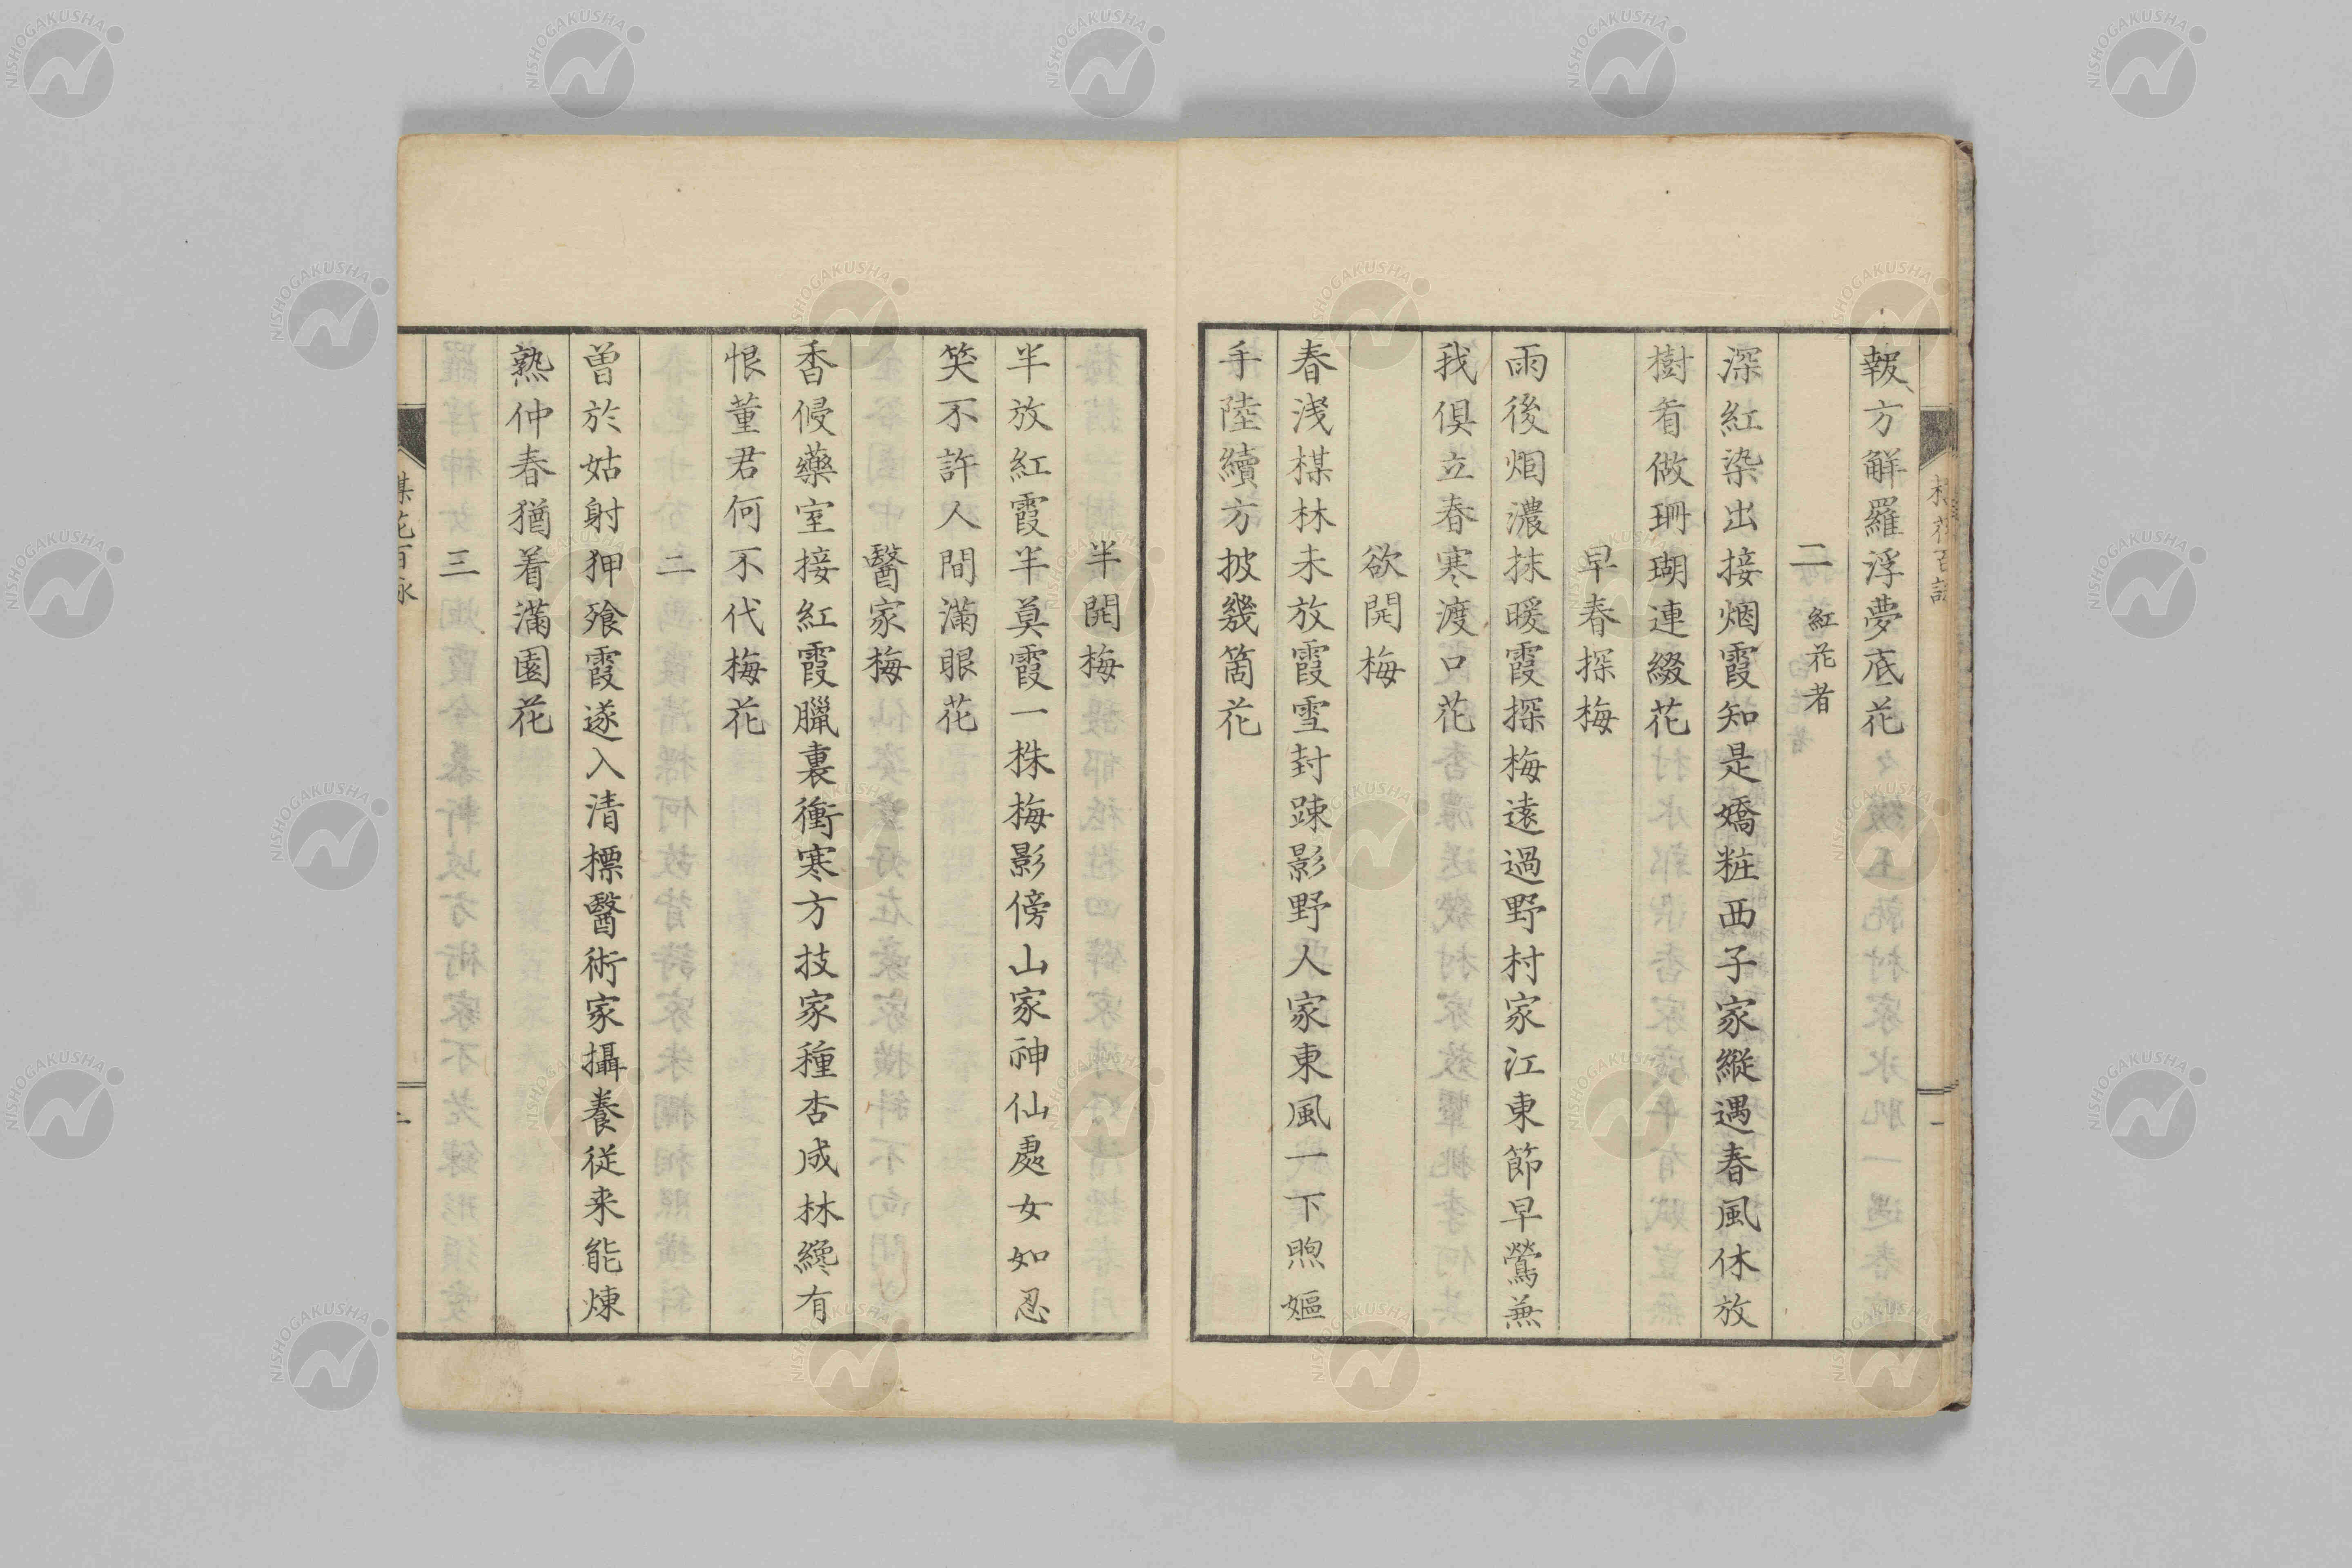 報方解羅浮夢底花
二 紅花者
深紅染出接烟霞知是嬌粧西子家縦遇春風休放
樹看做珊瑚連綴花
早春探梅
雨後烟濃抹暖霞探梅遠過野村家江東節早鶯無
我俱立春寒渡口花
欲開梅
春浅楳林未放霞雪封踈影野人家東風一下煦嫗
手陸續方披幾箇花
半開梅
半放紅霞半莫霞一株梅影傍山家神仙處女如忍
笑不許人間滿眼花
醫家梅
香侵藥室接紅霞臘裏衝寒方技家種杏成林纔有
恨董君何不代梅花
二
曽於姑射狎飱霞遂入清標醫術家攝養従来能煉
熟仲春猶着滿園花
三
楳花百詠
二
NISHOGAKUSHA